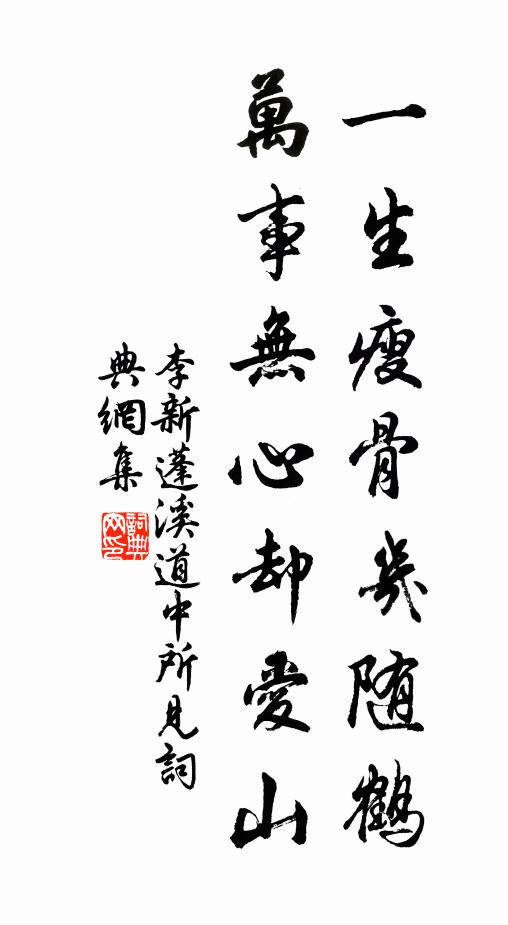 一生瘦骨幾随鶴
萬事無心却愛山
李新蓬溪道中所見詞
典網集
詞典網印